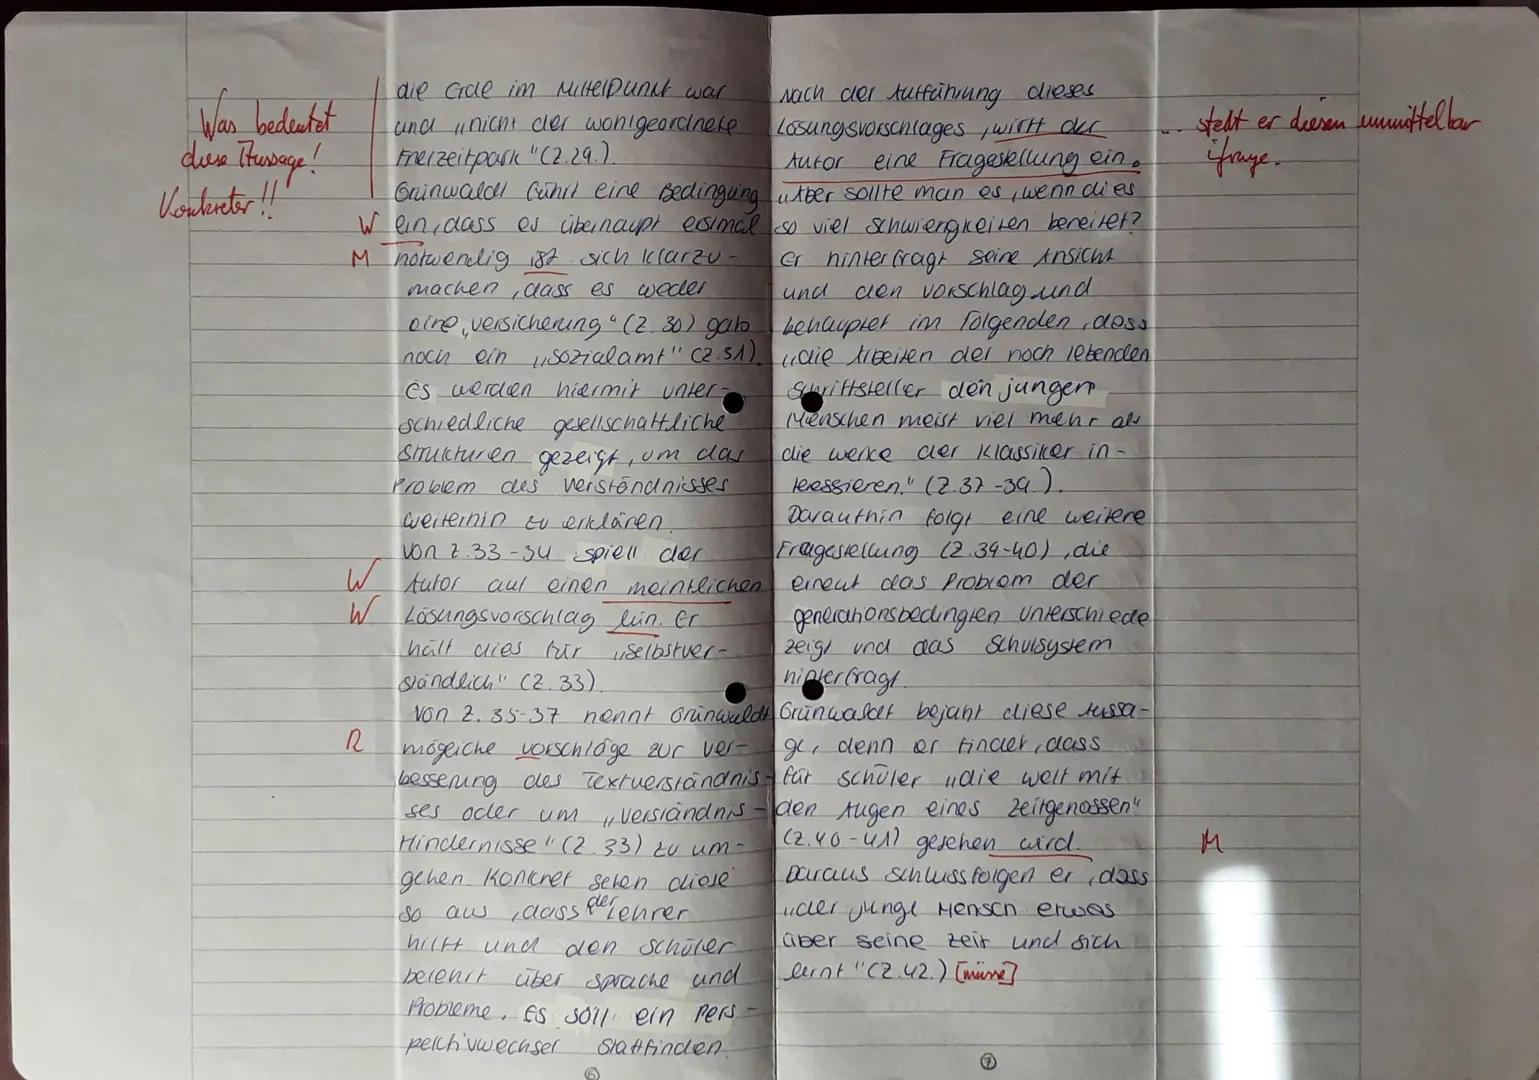 Was bedeutet
diese Aussage!
Konkreter!!
die Erde im Mittelpunkt war
und „nicht der wohlgeordnete
Freizeitpark" (Z.29.).
Grünwaldt führt eine Bedingung
W ein, dass es überhaupt erstmal
M notwendig ist sich klarzu-
machen, dass es weder
eine „Versicherung" (Z.30) gab
noch ein „Sozialamt" (Z.31).
Es werden hiermit unter-
schiedliche gesellschaftliche
Strukturen gezeigt, um das
Problem des Verständnisses
weiterhin zu erklären.
Von Z.33-34 spielt der
W Autor auf einen meintlichen
W Lösungsvorschlag hin. Er
hält dies für „selbstver-
ständlich" (Z.33).
Von Z.35-37 nennt Grünwaldt
R mögliche Vorschläge zur Ver-
besserung des Textverständnis-
ses oder um „Verständnis-
Hindernisse" (Z.33) zu um-
gehen. Konkret sehen diese
so aus, dass der Lehrer
hilft und den Schüler
belehrt über Sprache und
Probleme. Es soll ein Pers-
pektivwechsel stattfinden.
6
Nach der Aufführung dieses
Lösungsvorschlages, wirft der
Autor eine Fragestellung ein.
„Aber sollte man es, wenn dies
so viel Schwierigkeiten bereitet?
Er hinterfragt seine Ansicht
und den Vorschlag und
behauptet im folgenden, dass
„die Arbeiten der noch lebenden
Schriftsteller den jungen
Menschen meist viel mehr als
die Werke der Klassiker in-
teressieren." (Z.37-39.).
Daraufhin folgt eine weitere
Fragestellung (Z.39-40), die
erneut das Problem der
generationsbedingten Unterschiede
zeigt und das Schulsystem
hinterfragt.
Grünwaldt bejaht diese Aussa-
ge, denn er findet, dass
für Schüler „die Welt mit
den Augen eines Zeitgenossen"
(Z.40-41) gesehen wird. M
Daraus schlussfolgert er, dass
„der junge Mensch etwas
über seine Zeit und sich
lernt" (Z.42.) [müsse]
7
... stellt er diesen unmittelbar